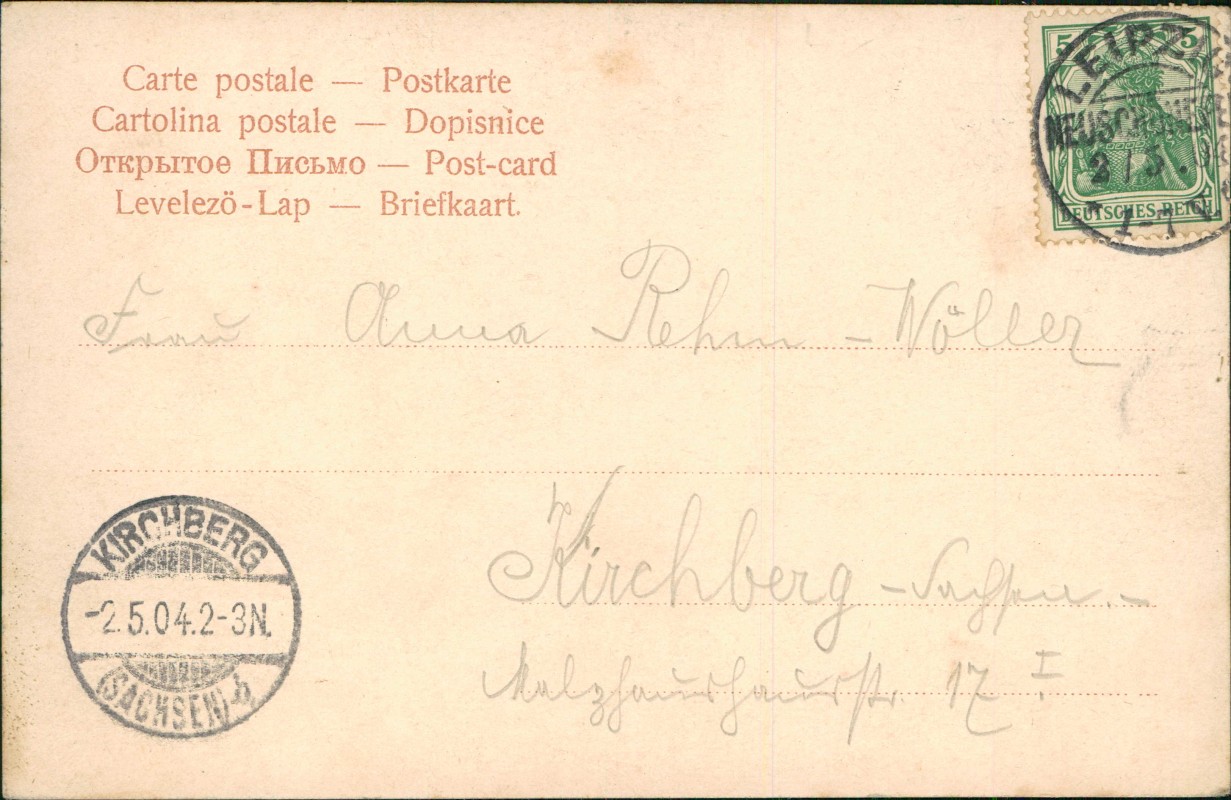 Carte postale — Postkarte
Cartolina postale — Dopisnice
Открытое Письмо — Post-card
Levelezö-Lap — Briefkaart.
5 5
DEUTSCHES REICH
LEIPZIG
2/5.04
1-7V
Frau Anna Rehm-Wöller
Kirchberg-Sachsen.-
17 I
KIRCHBERG
-2.5.04.2-3N.
(SACHSEN)